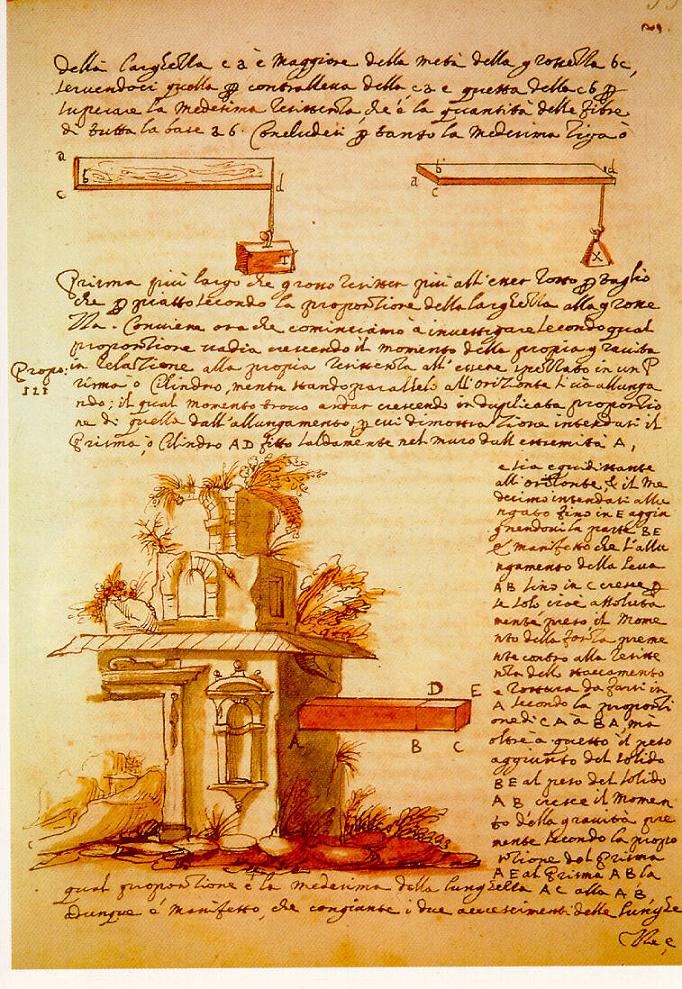 della larghezza ca è maggiore della metà della grossezza bc,
servendoci quella ꝑ contralleva della ca e questa della cb ꝑ
superare la medesima resistenza, che è la quantità delle fibre
di tutta la base ab. Concludesi ꝑ tanto la medesima riga o
a
b
c
d
T
b
a
c
d
X
Prisma più largo che grosso resister più all'esser rotto ꝑ taglio
che ꝑ piatto secondo la proporzione della larghezza alla grosse
zza. Conviene ora che cominciamo a investigare secondo qual
proporzione vadia crescendo il momento della propria gravità
Propo:
in relazione alla propria resistenza all'essere spezzato in un P
risma ò Cilindro, mentre stando parallelo all'orizonte si và allunga
ndo; il qual momento trovo andar crescendo in duplicata proporzio
ne di quella dell'allungamento, ꝑ cui dimostrazione intendasi il
Prisma, ò Cilindro AD fitto saldamente nel muro dall'estremità A,
e sia equidistante
all'orizonte, & il me
desimo intendasi allu
ngato fino in E aggiu
gnendovi la parte BE
è manifesto che l'allu
ngamento della Leva
AB fino in C cresce ꝑ
se solo cioè assoluta
mente preso il Mome
nto della forza preme
nte contro alla resiste
nza dello staccamento
e rottura da farsi in
A secondo la proporzi
one di CA à BA, mà
oltre à questo il peso
aggiunto del solido
BE al peso del solido
AB cresce il Momen
to della gravità pre
mente secondo la propo
rzione del Prisma
AE al Prisma AB la
A
D
E
B
C
qual proporzione è la medesima della lunghezza AC alla AB
Dunque è manifesto, che congiunte i due accrescimenti delle lunghe